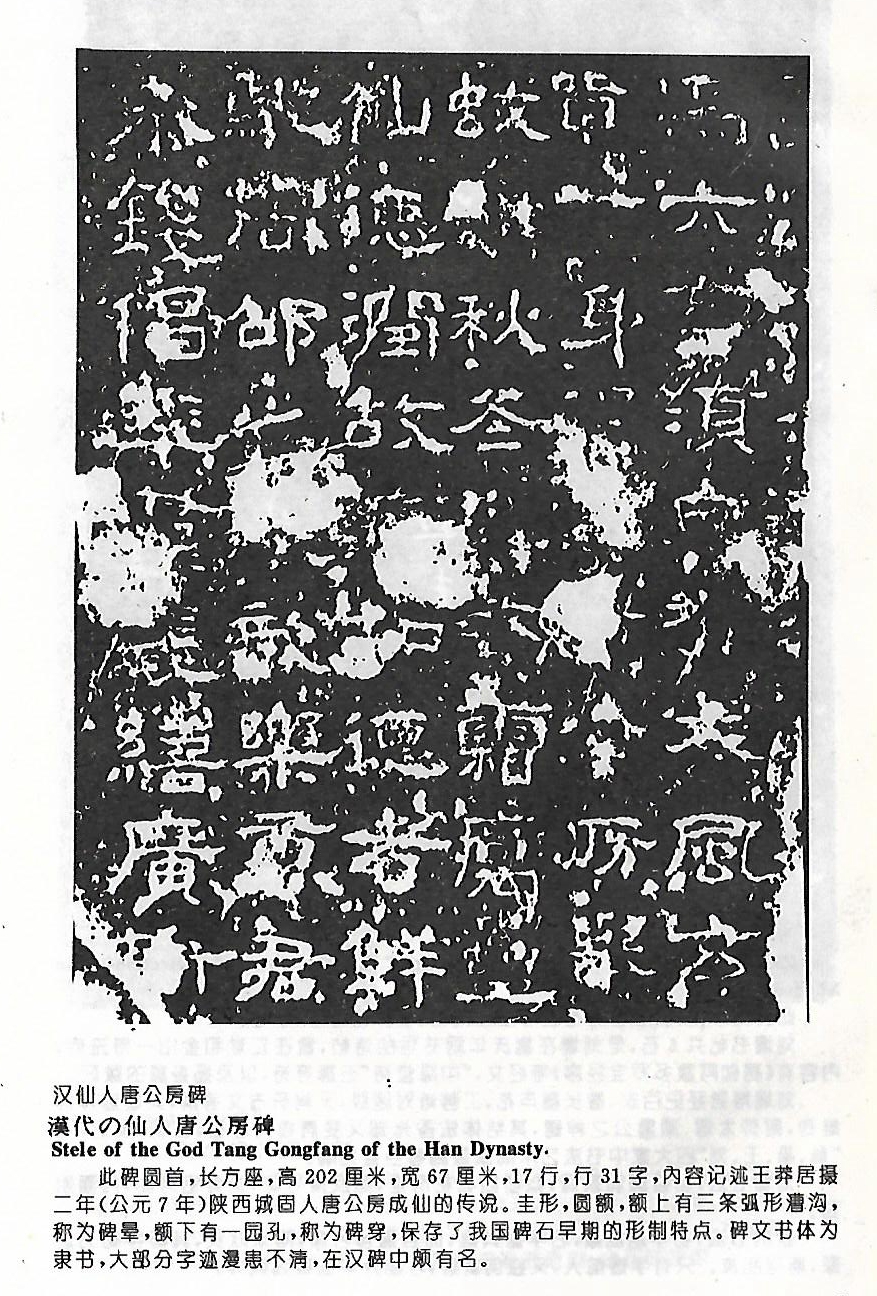 馬六畜須大風玄
皆一身公房舉
蚊蚋秋冬霜癘蠱
仙德潤故知德者鮮
馳周邵之歆樂唐君
奉錢倡率義繕廣
汉仙人唐公房碑
漢代の仙人唐公房碑
Stele of the God Tang Gongfang of the Han Dynasty.
此碑圆首,长方座,高202厘米,宽67厘米,17行,行31字,内容记述王莽居摄
二年(公元7年)陕西城固人唐公房成仙的传说。圭形,圆额,额上有三条弧形漕沟,
称为碑晕,额下有一园孔,称为碑穿,保存了我国碑石早期的形制特点。碑文书体为
隶书,大部分字迹漫患不清,在汉碑中颇有名。